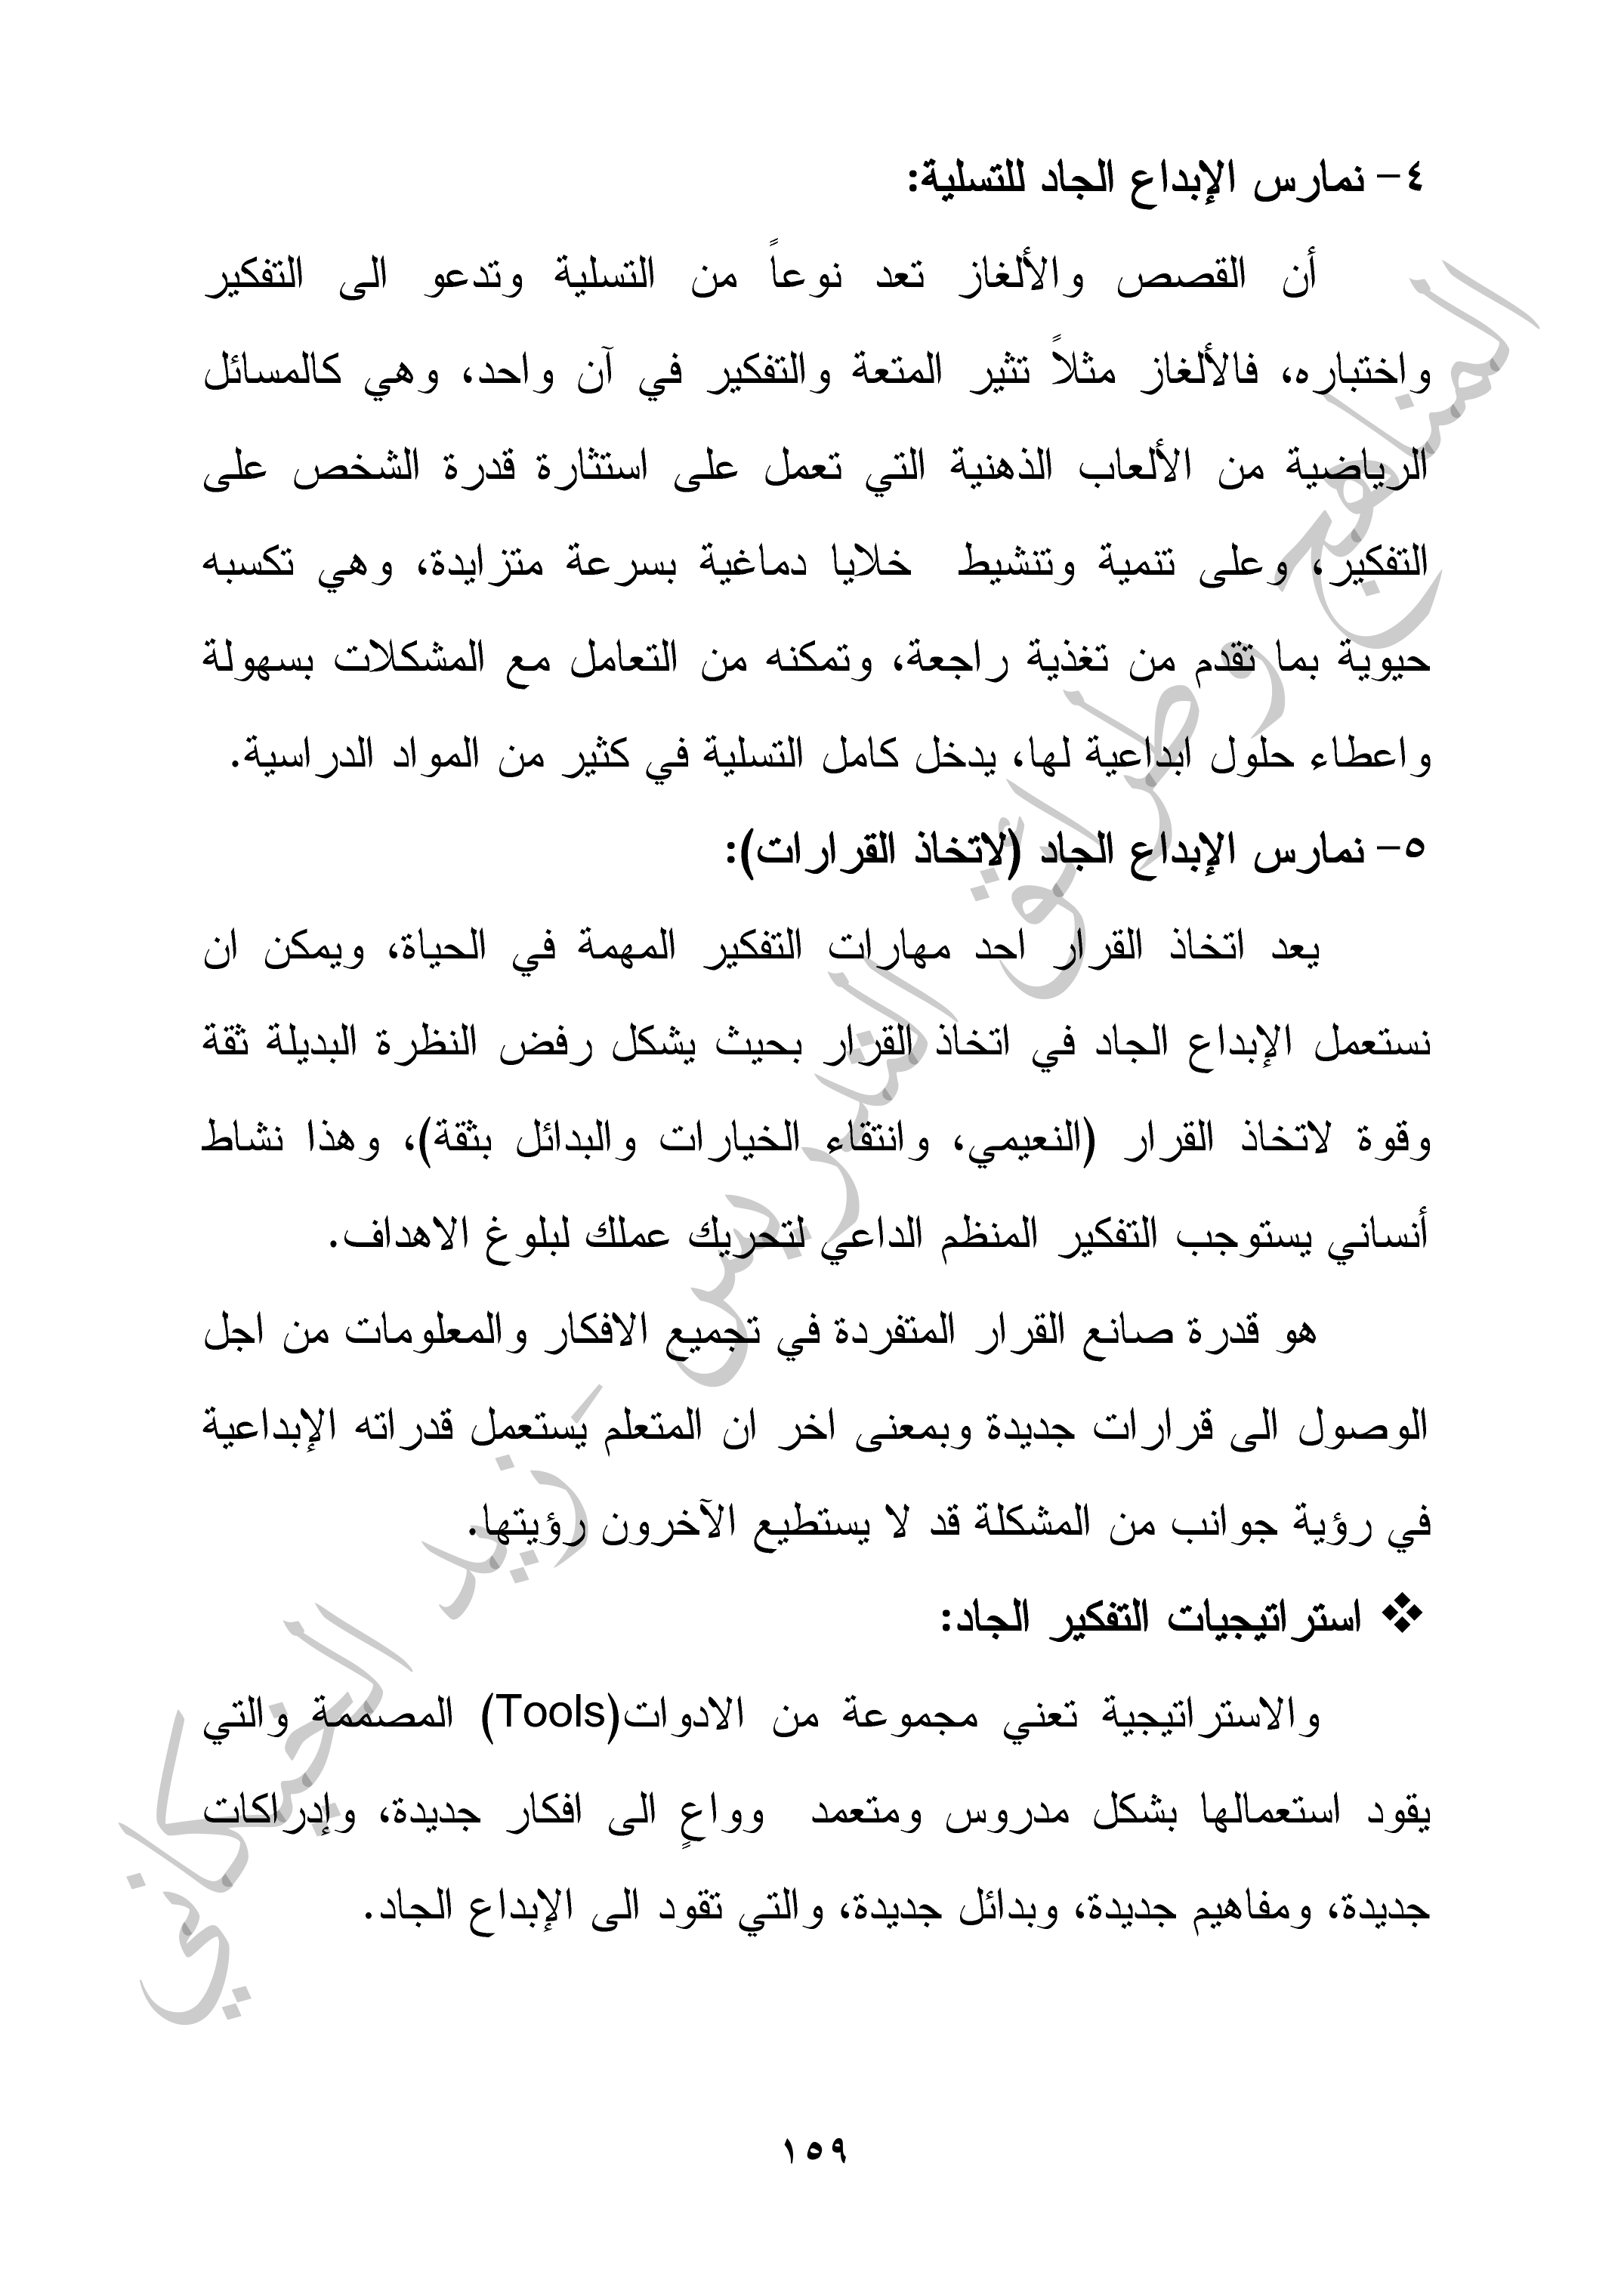 ٤- نمارس الإبداع الجاد للتسلية:
أن القصص والألغاز تعد نوعاً من التسلية وتدعو الى التفكير
واختباره، فالألغاز مثلاً تثير المتعة والتفكير في آن واحد، وهي كالمسائل
الرياضية من الألعاب الذهنية التي تعمل على استثارة قدرة الشخص على
التفكير، وعلى تنمية وتنشيط خلايا دماغية بسرعة متزايدة، وهي تكسبه
حيوية بما تقدم من تغذية راجعة، وتمكنه من التعامل مع المشكلات بسهولة
واعطاء حلول ابداعية لها، يدخل كامل التسلية في كثير من المواد الدراسية.
٥- نمارس الإبداع الجاد (لاتخاذ القرارات):
يعد اتخاذ القرار احد مهارات التفكير المهمة في الحياة، ويمكن ان
نستعمل الإبداع الجاد في اتخاذ القرار بحيث يشكل رفض النظرة البديلة ثقة
وقوة لاتخاذ القرار (النعيمي، وانتقاء الخيارات والبدائل بثقة)، وهذا نشاط
أنساني يستوجب التفكير المنظم الداعي لتحريك عملك لبلوغ الاهداف.
هو قدرة صانع القرار المتفردة في تجميع الافكار والمعلومات من اجل
الوصول الى قرارات جديدة وبمعنى اخر ان المتعلم يستعمل قدراته الإبداعية
في رؤية جوانب من المشكلة قد لا يستطيع الآخرون رؤيتها.
❖ استراتيجيات التفكير الجاد:
والاستراتيجية تعني مجموعة من الادوات(Tools) المصممة والتي
يقود استعمالها بشكل مدروس ومتعمد وواعٍ الى افكار جديدة، وإدراكات
جديدة، ومفاهيم جديدة، وبدائل جديدة، والتي تقود الى الإبداع الجاد.
١٥٩
المناهج وطرائق التدريس - زيد الخيكاني